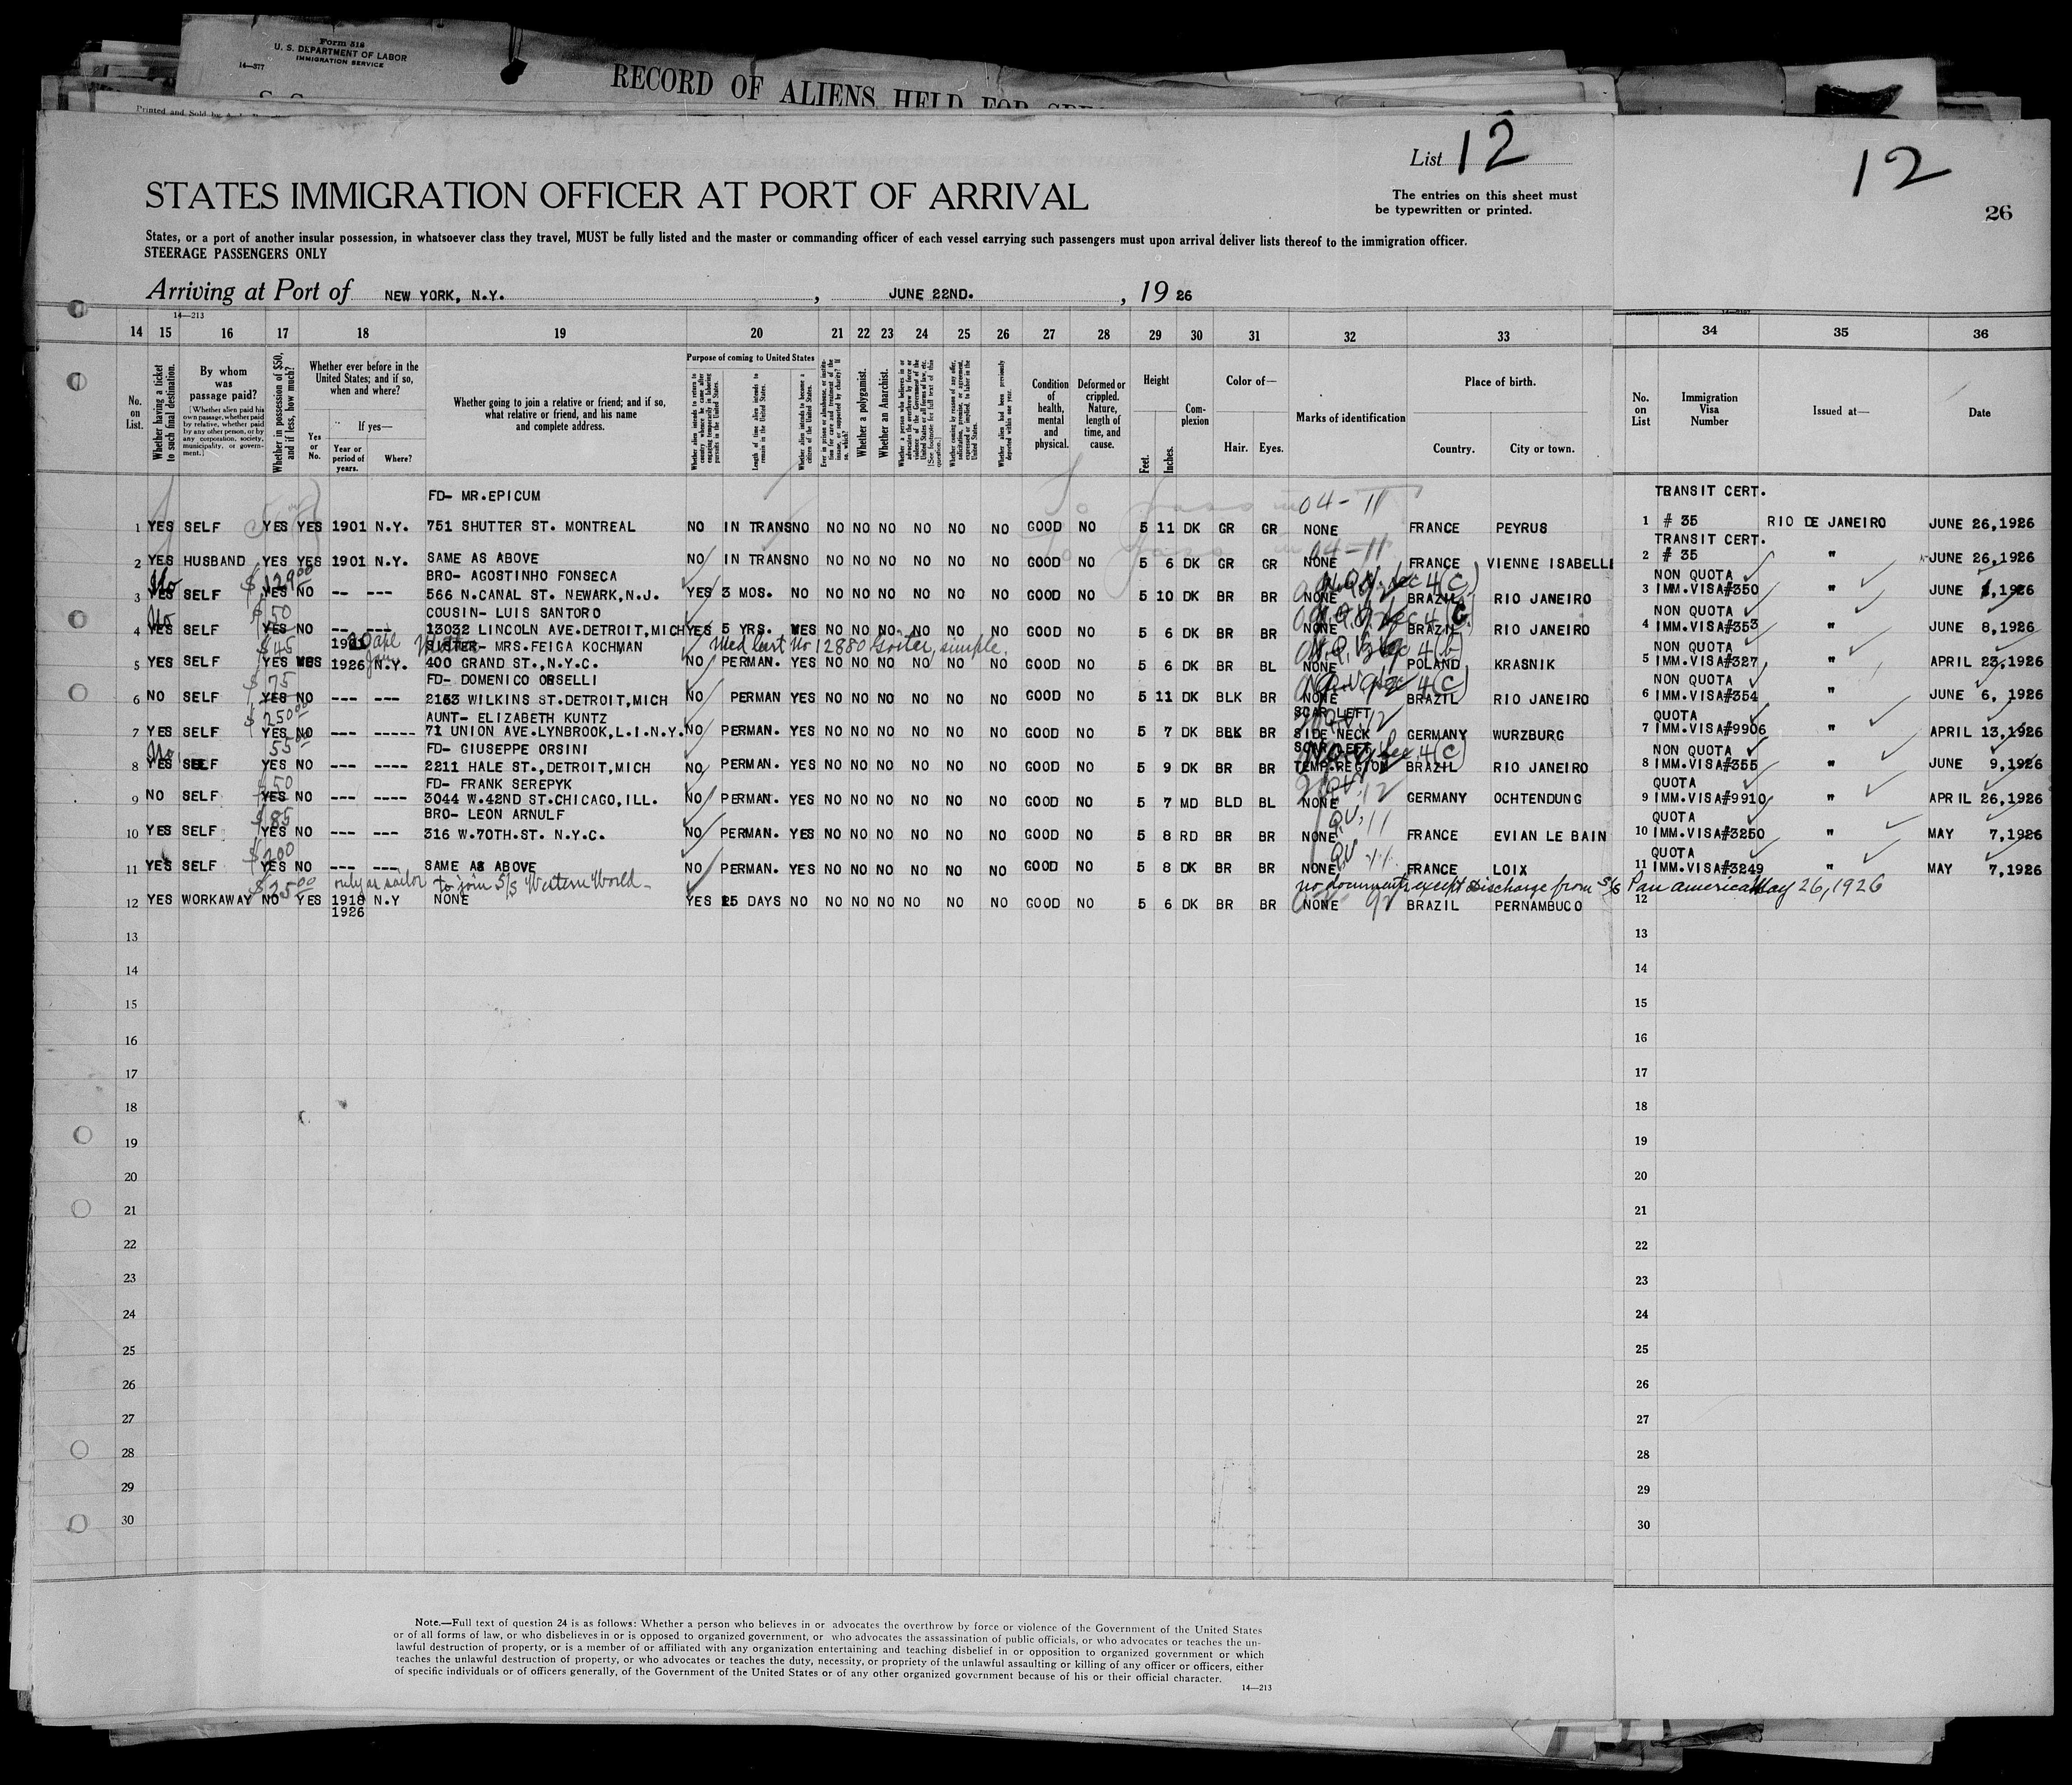 Form 518
U. S. DEPARTMENT OF LABOR
IMMIGRATION SERVICE
14—377
RECORD OF ALIENS HELD FOR
Printed and Sold by
List 12
12
26
STATES IMMIGRATION OFFICER AT PORT OF ARRIVAL
The entries on this sheet must
be typewritten or printed.
States, or a port of another insular possession, in whatsoever class they travel, MUST be fully listed and the master or commanding officer of each vessel carrying such passengers must upon arrival deliver lists thereof to the immigration officer.
STEERAGE PASSENGERS ONLY
Arriving at Port of NEW YORK, N.Y. , JUNE 22ND. , 19 26
14—213
14 15 16 17 18 19 20 21 22 23 24 25 26 27 28 29 30 31 32 33 34 35 36
No. on List.
Whether having a ticket to such final destination.
By whom was passage paid?
[Whether alien paid his own passage, whether paid by relative, whether paid by any other person, or by any corporation, society, municipality, or government.]
Whether in possession of $50, and if less, how much?
Whether ever before in the United States; and if so, when and where?
Yes or No.
If yes—
Year or period of years.
Where?
Whether going to join a relative or friend; and if so, what relative or friend, and his name and complete address.
Purpose of coming to United States
Length of time alien intends to remain in the United States.
Whether alien intends to become a citizen of the United States.
Whether a polygamist.
Whether an Anarchist.
Condition of health, mental and physical.
Deformed or crippled. Nature, length of time, and cause.
Height
Feet. Inches.
Complexion
Color of—
Hair. Eyes.
Marks of identification
Place of birth.
Country. City or town.
No. on List
Immigration Visa Number
Issued at—
Date
FD- MR.EPICUM 04-11 TRANSIT CERT.
1 YES SELF YES YES 1901 N.Y. 751 SHUTTER ST. MONTREAL NO IN TRANS NO NO NO NO NO NO NO GOOD NO 5 11 DK GR GR NONE FRANCE PEYRUS 1 # 35 RIO DE JANEIRO JUNE 26,1926
04-11 TRANSIT CERT.
2 YES HUSBAND YES YES 1901 N.Y. SAME AS ABOVE NO IN TRANS NO NO NO NO NO NO NO GOOD NO 5 6 DK GR GR NONE FRANCE VIENNE ISABELL 2 # 35 " JUNE 26,1926
No $129.00 BRO- AGOSTINHO FONSECA NON QUOTA
3 YES SELF YES NO -- --- 566 N.CANAL ST. NEWARK,N.J. YES 3 MOS. NO NO NO NO NO NO NO GOOD NO 5 10 DK BR BR NONE BRAZIL RIO JANEIRO 3 IMM.VISA#350 " JUNE 1,1926
No $50 COUSIN- LUIS SANTORO NON QUOTA
4 YES SELF YES NO -- --- 13032 LINCOLN AVE.DETROIT,MICH YES 5 YRS. NO NO NO NO NO NO GOOD NO 5 6 DK BR BR NONE BRAZIL RIO JANEIRO 4 IMM.VISA#353 " JUNE 8,1926
$45 SISTER- MRS.FEIGA KOCHMAN Med Cert No 12880 Goiter, simple. NON QUOTA
5 YES SELF YES 1926 N.Y. 400 GRAND ST.,N.Y.C. NO PERMAN. YES NO NO NO NO NO NO GOOD NO 5 6 DK BR BL NONE POLAND KRASNIK 5 IMM.VISA#327 " APRIL 23,1926
$75 FD- DOMENICO ORSELLI 4(c) NON QUOTA
6 NO SELF YES NO --- --- 2153 WILKINS ST.DETROIT,MICH NO PERMAN YES NO NO NO NO NO NO GOOD NO 5 11 DK BLK BR NONE BRAZIL RIO JANEIRO 6 IMM.VISA#354 " JUNE 6, 1926
$250.00 AUNT- ELIZABETH KUNTZ SCAR LEFT QUOTA
7 YES SELF YES NO --- ----- 71 UNION AVE.LYNBROOK,L.I.N.Y. NO PERMAN. YES NO NO NO NO NO NO GOOD NO 5 7 DK BLK BR SIDE NECK GERMANY WURZBURG 7 IMM.VISA#9906 " APRIL 13,1926
No 55.00 FD- GIUSEPPE ORSINI SCAR LEFT 4(c) NON QUOTA
8 YES SELF YES NO --- ---- 2211 HALE ST.,DETROIT,MICH NO PERMAN. YES NO NO NO NO NO NO GOOD NO 5 9 DK BR BR TEMP.REGION BRAZIL RIO JANEIRO 8 IMM.VISA#355 " JUNE 9,1926
$50 FD- FRANK SEREPYK QUOTA
9 NO SELF YES NO --- ---- 3044 W.42ND ST.CHICAGO,ILL. NO PERMAN. YES NO NO NO NO NO NO GOOD NO 5 7 MD BLD BL NONE GERMANY OCHTENDUNG 9 IMM.VISA#9910 " APRIL 26,1926
$85 BRO- LEON ARNULF QV. 11 QUOTA
10 YES SELF YES NO --- --- 316 W.70TH.ST. N.Y.C. NO PERMAN. YES NO NO NO NO NO NO GOOD NO 5 8 RD BR BR NONE FRANCE EVIAN LE BAIN 10 IMM.VISA#3250 " MAY 7,1926
$200 QV 11 QUOTA
11 YES SELF YES NO --- --- SAME AS ABOVE NO PERMAN. YES NO NO NO NO NO NO GOOD NO 5 8 DK BR BR NONE FRANCE LOIX 11 IMM.VISA#3249 " MAY 7,1926
$25.00 only as sailor to join S/S Western World - no documents except discharge from S/S Pan America May 26, 1926
12 YES WORKAWAY NO YES 1918 N.Y NONE YES 15 DAYS NO NO NO NO NO NO NO GOOD NO 5 6 DK BR BR NONE BRAZIL PERNAMBUCO 12
1926
13 13
14 14
15 15
16 16
17 17
18 18
19 19
20 20
21 21
22 22
23 23
24 24
25 25
26 26
27 27
28 28
29 29
30 30
Note.—Full text of question 24 is as follows: Whether a person who believes in or advocates the overthrow by force or violence of the Government of the United States
or of all forms of law, or who disbelieves in or is opposed to organized government, or who advocates the assassination of public officials, or who advocates or teaches the un-
lawful destruction of property, or is a member of or affiliated with any organization entertaining and teaching disbelief in or opposition to organized government or which
teaches the unlawful destruction of property, or who advocates or teaches the duty, necessity, or propriety of the unlawful assaulting or killing of any officer or officers, either
of specific individuals or of officers generally, of the Government of the United States or of any other organized government because of his or their official character.
14—213